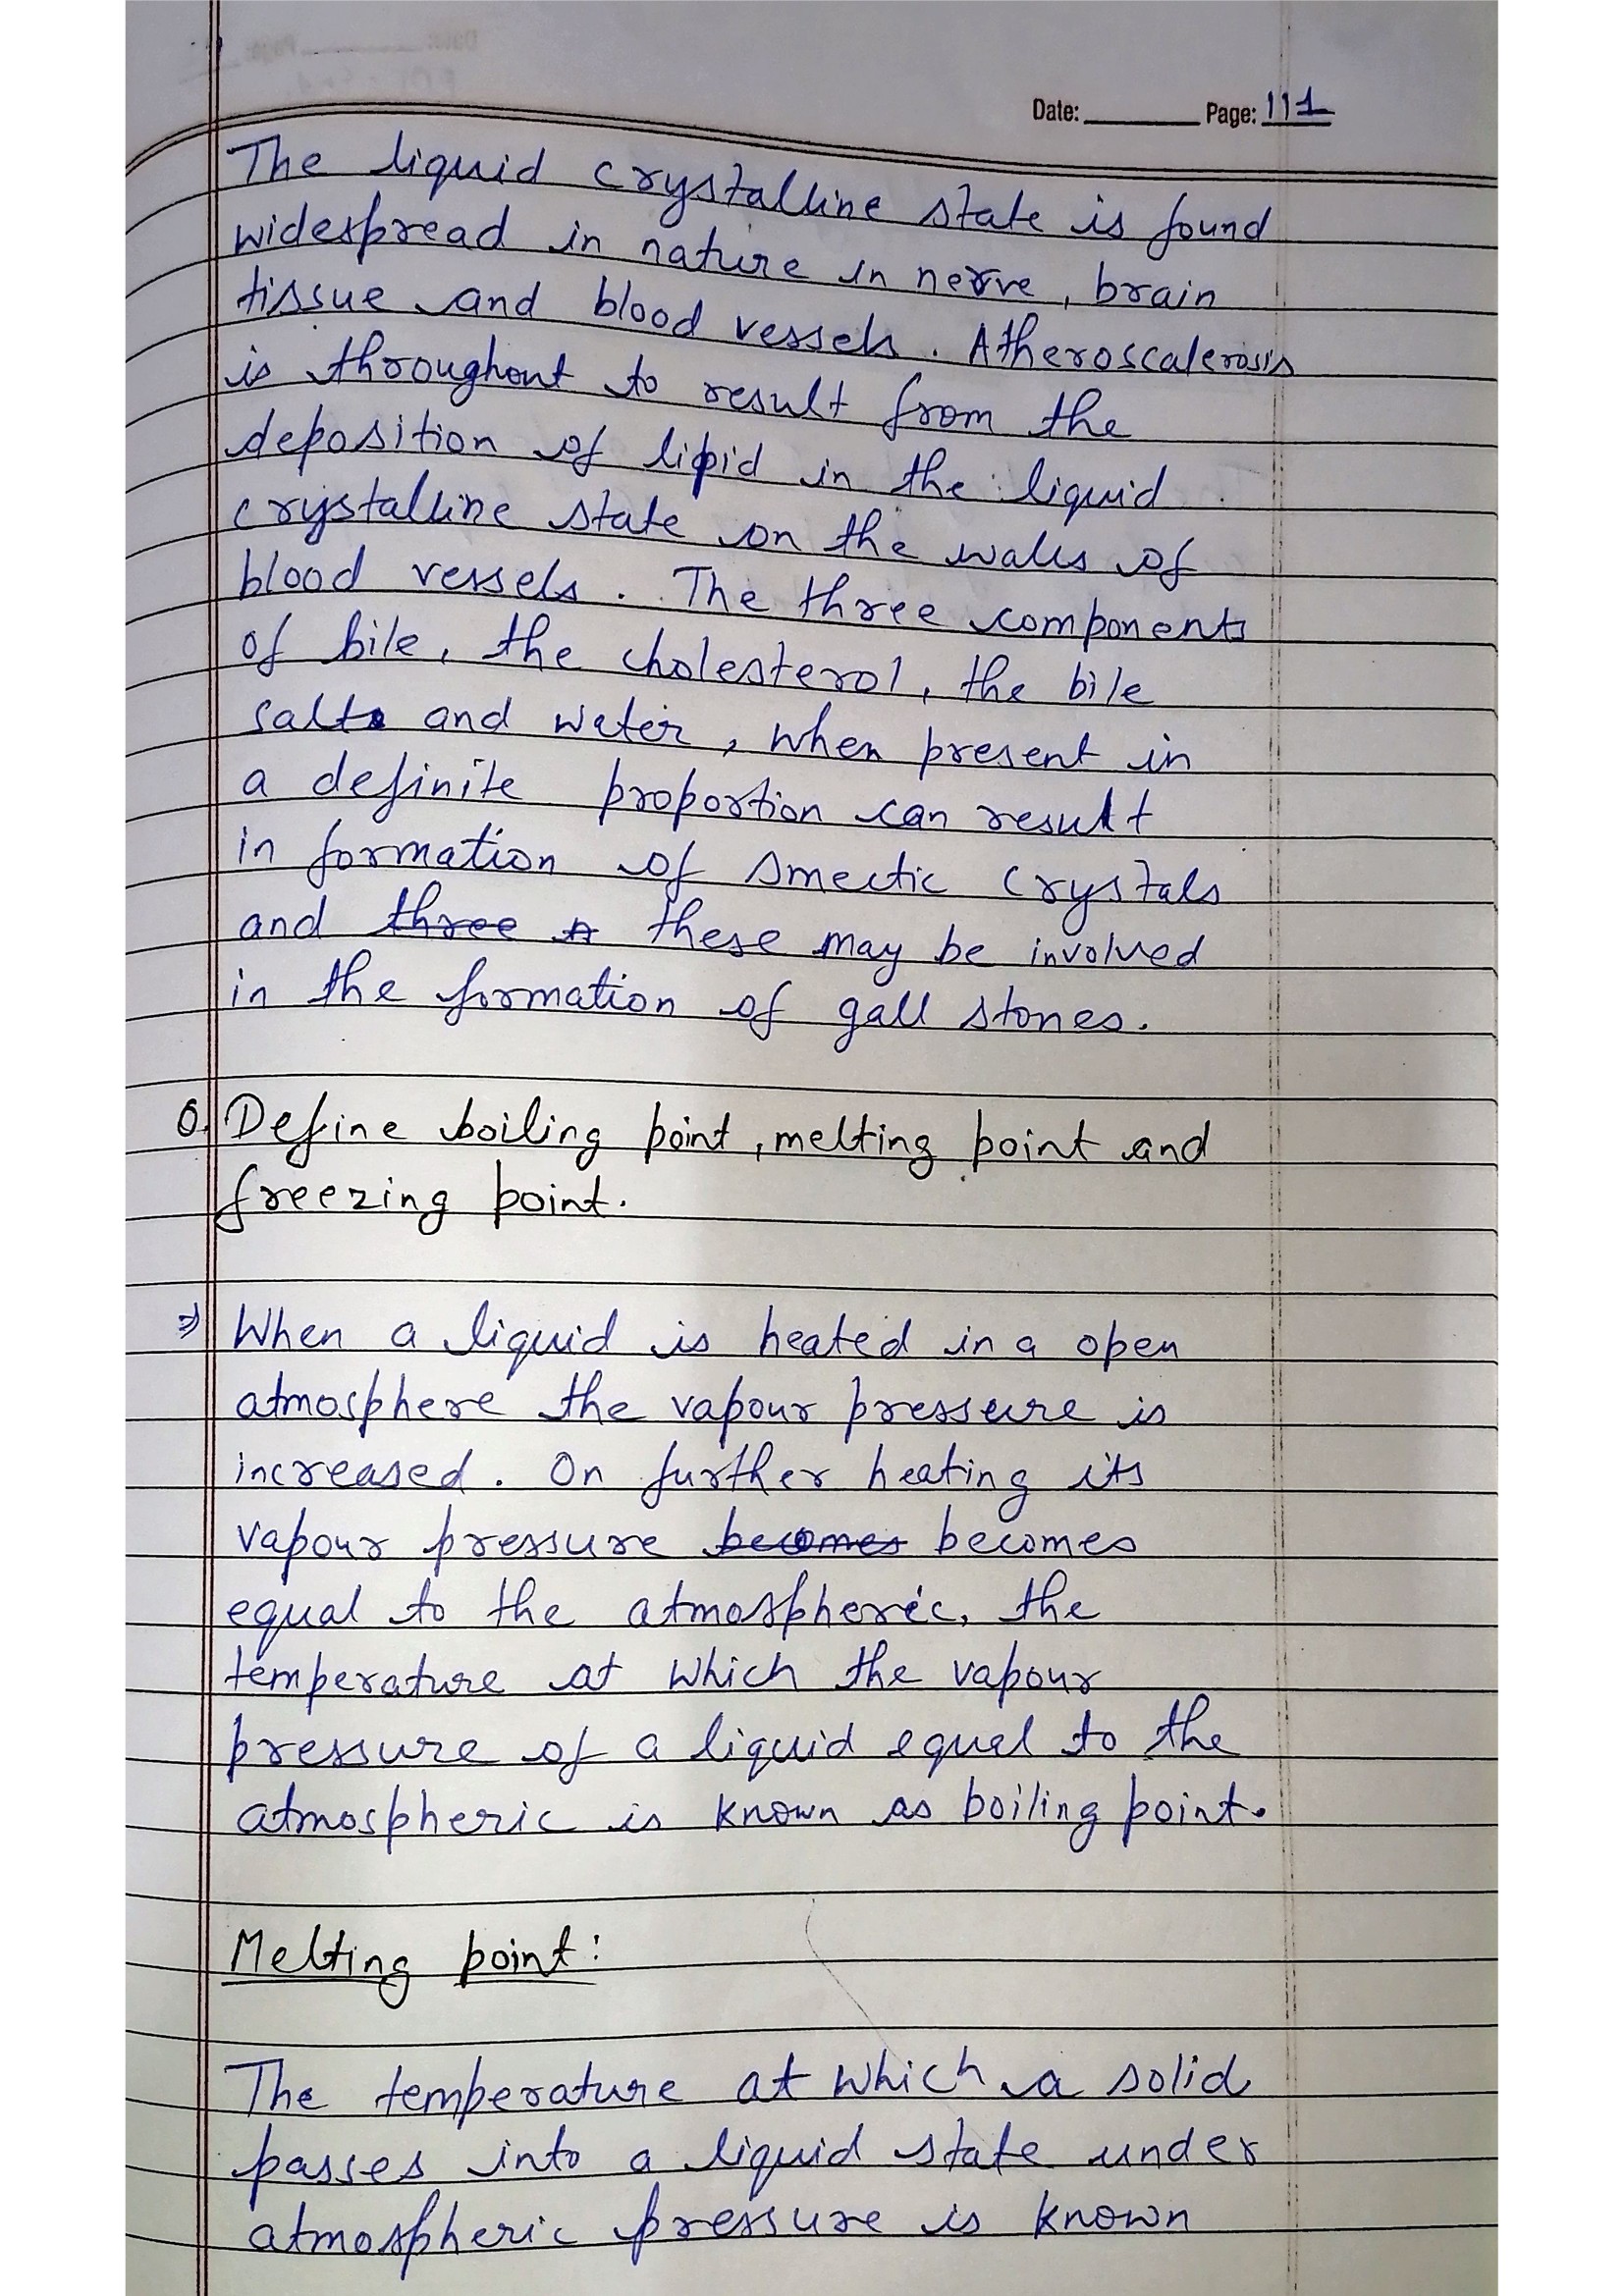 Date: Page: 111
The liquid crystalline state is found
widespread in nature in nerve, brain
tissue and blood vessels. Atheroscalerosis
is throughout to result from the
deposition of lipid in the liquid
crystalline state on the walls of
blood vessels. The three components
of bile, the cholesterol, the bile
salts and water, when present in
a definite proportion can result
in formation of smectic crystals
and three these may be involved
in the formation of gall stones.
Q. Define boiling point, melting point and
freezing point.
⇒ When a liquid is heated in a open
atmosphere the vapour presseure is
increased. On further heating its
vapour pressure becomes becomes
equal to the atmospheric, the
temperature at which the vapour
pressure of a liquid equal to the
atmospheric is known as boiling point.
Melting point:
The temperature at which a solid
passes into a liquid state under
atmospheric pressure is known